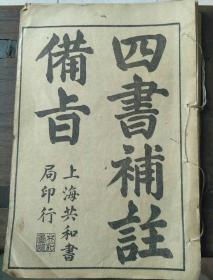 四書補註
備旨
上海共和書
局印行